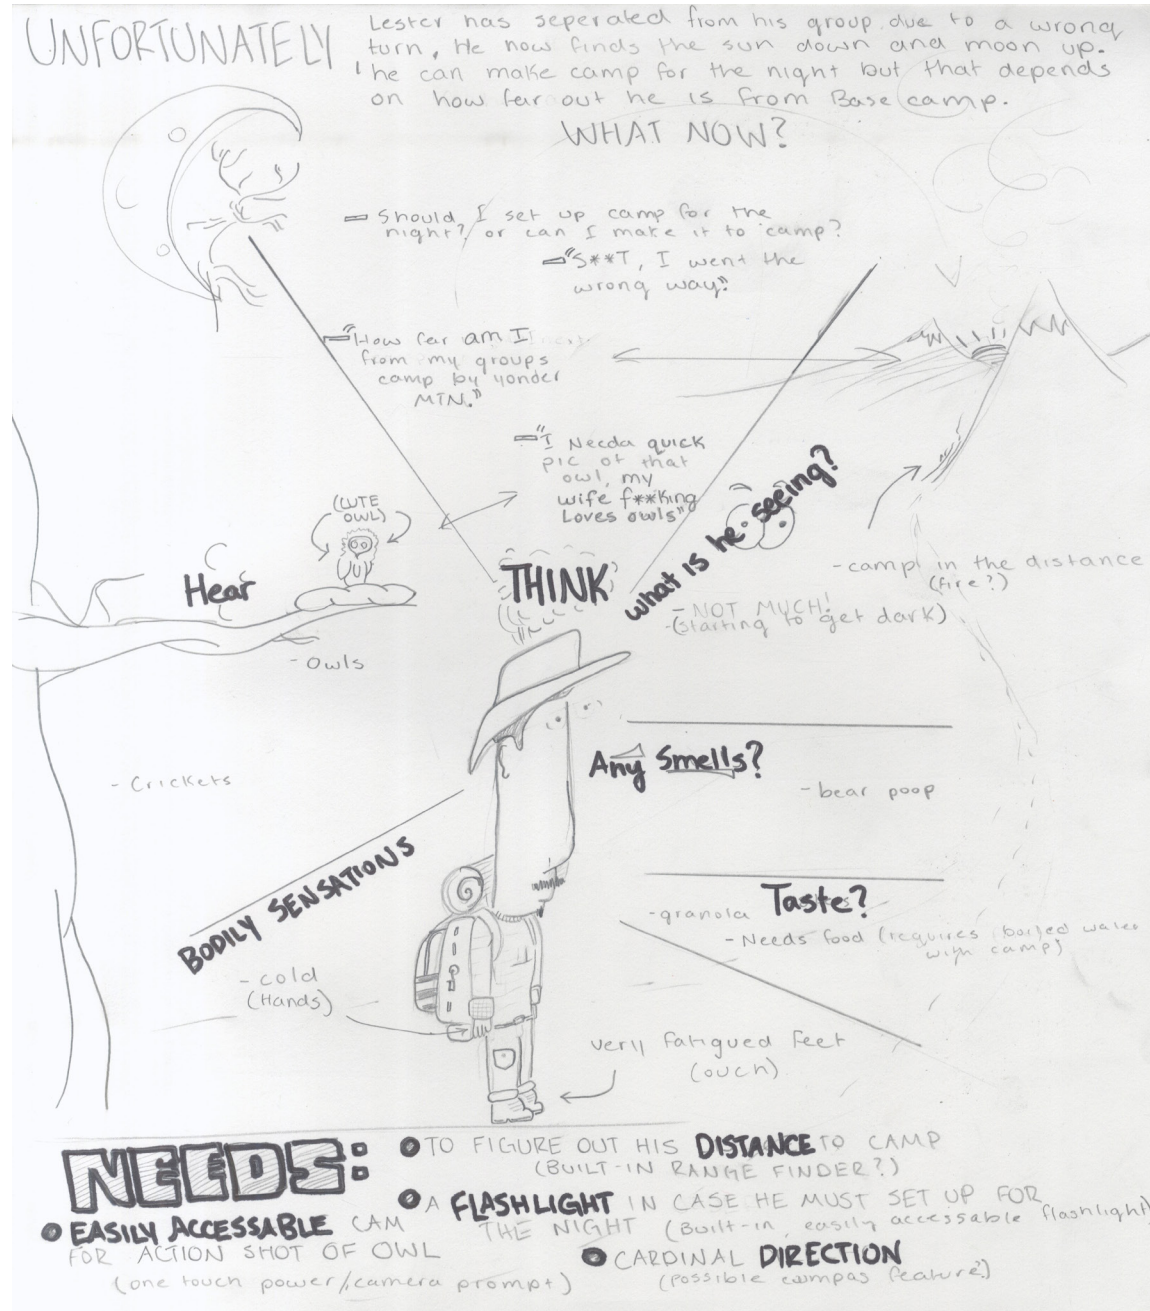 UNFORTUNATELY
Lester has seperated from his group due to a wrong
turn. He now finds the sun down and moon up.
he can make camp for the night but that depends
on how far out he is from Base camp.
WHAT NOW?
- Should I set up camp for the
night? or can I make it to camp?
- "S**T, I went the
wrong way."
- "How far am I
from my groups
camp by yonder
MTN."
- "I Needa quick
pic of that
owl, my
wife f**king
Loves owls"
(CUTE
OWL)
Hear
- Owls
- Crickets
THINK
what is he seeing?
- camp in the distance
(fire?)
- NOT MUCH!
- (starting to get dark)
Any Smells?
- bear poop
Taste?
- granola
- Needs food (requires boiled water
with camp)
BODILY SENSATIONS
- cold
(Hands)
very fatigued feet
(ouch)
NEEDS:
TO FIGURE OUT HIS DISTANCE TO CAMP
(BUILT-IN RANGE FINDER?)
A FLASHLIGHT IN CASE HE MUST SET UP FOR
THE NIGHT (Built-in, easily accessable flashlight)
EASILY ACCESSABLE CAM
FOR ACTION SHOT OF OWL
(one touch power/camera prompt)
CARDINAL DIRECTION
(possible compas feature?)